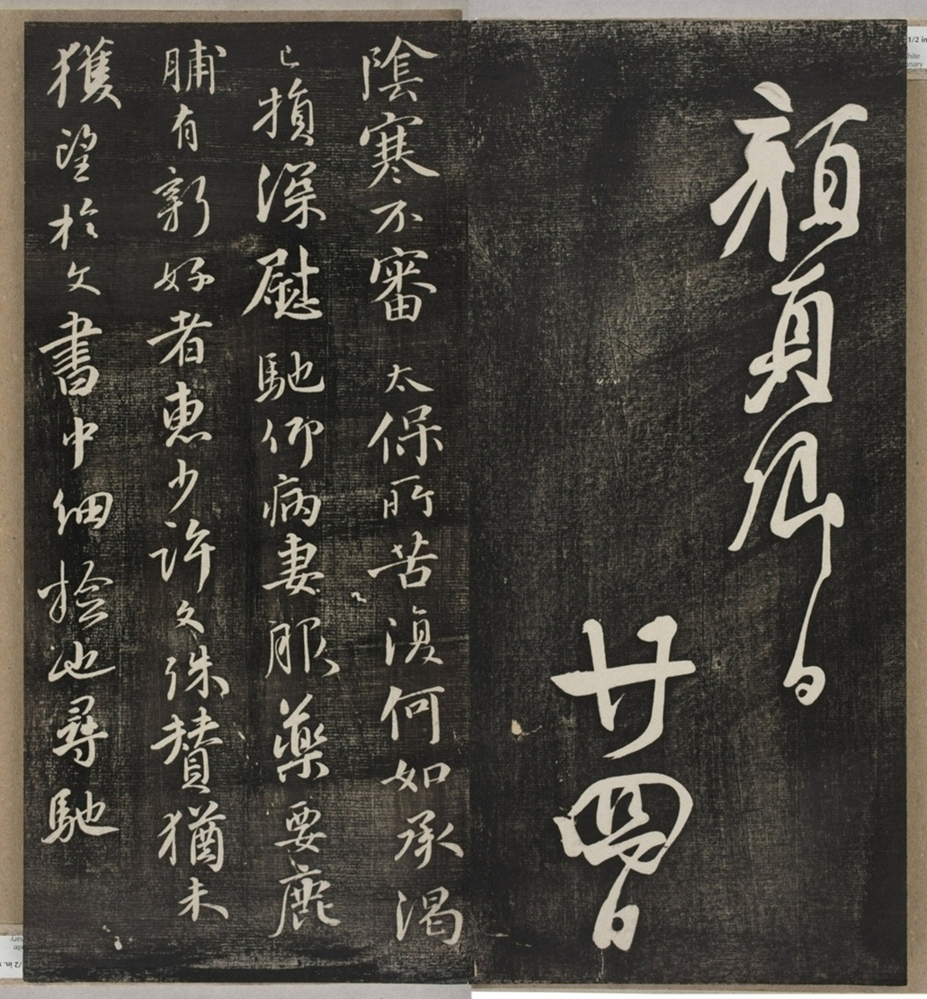 顏真卿白
廿四日
陰寒不審 太保所苦復何如承渴
已損深慰馳仰病妻服藥要鹿
脯有新好者惠少許文殊贊猶未
獲望於文書中細撿也尋馳